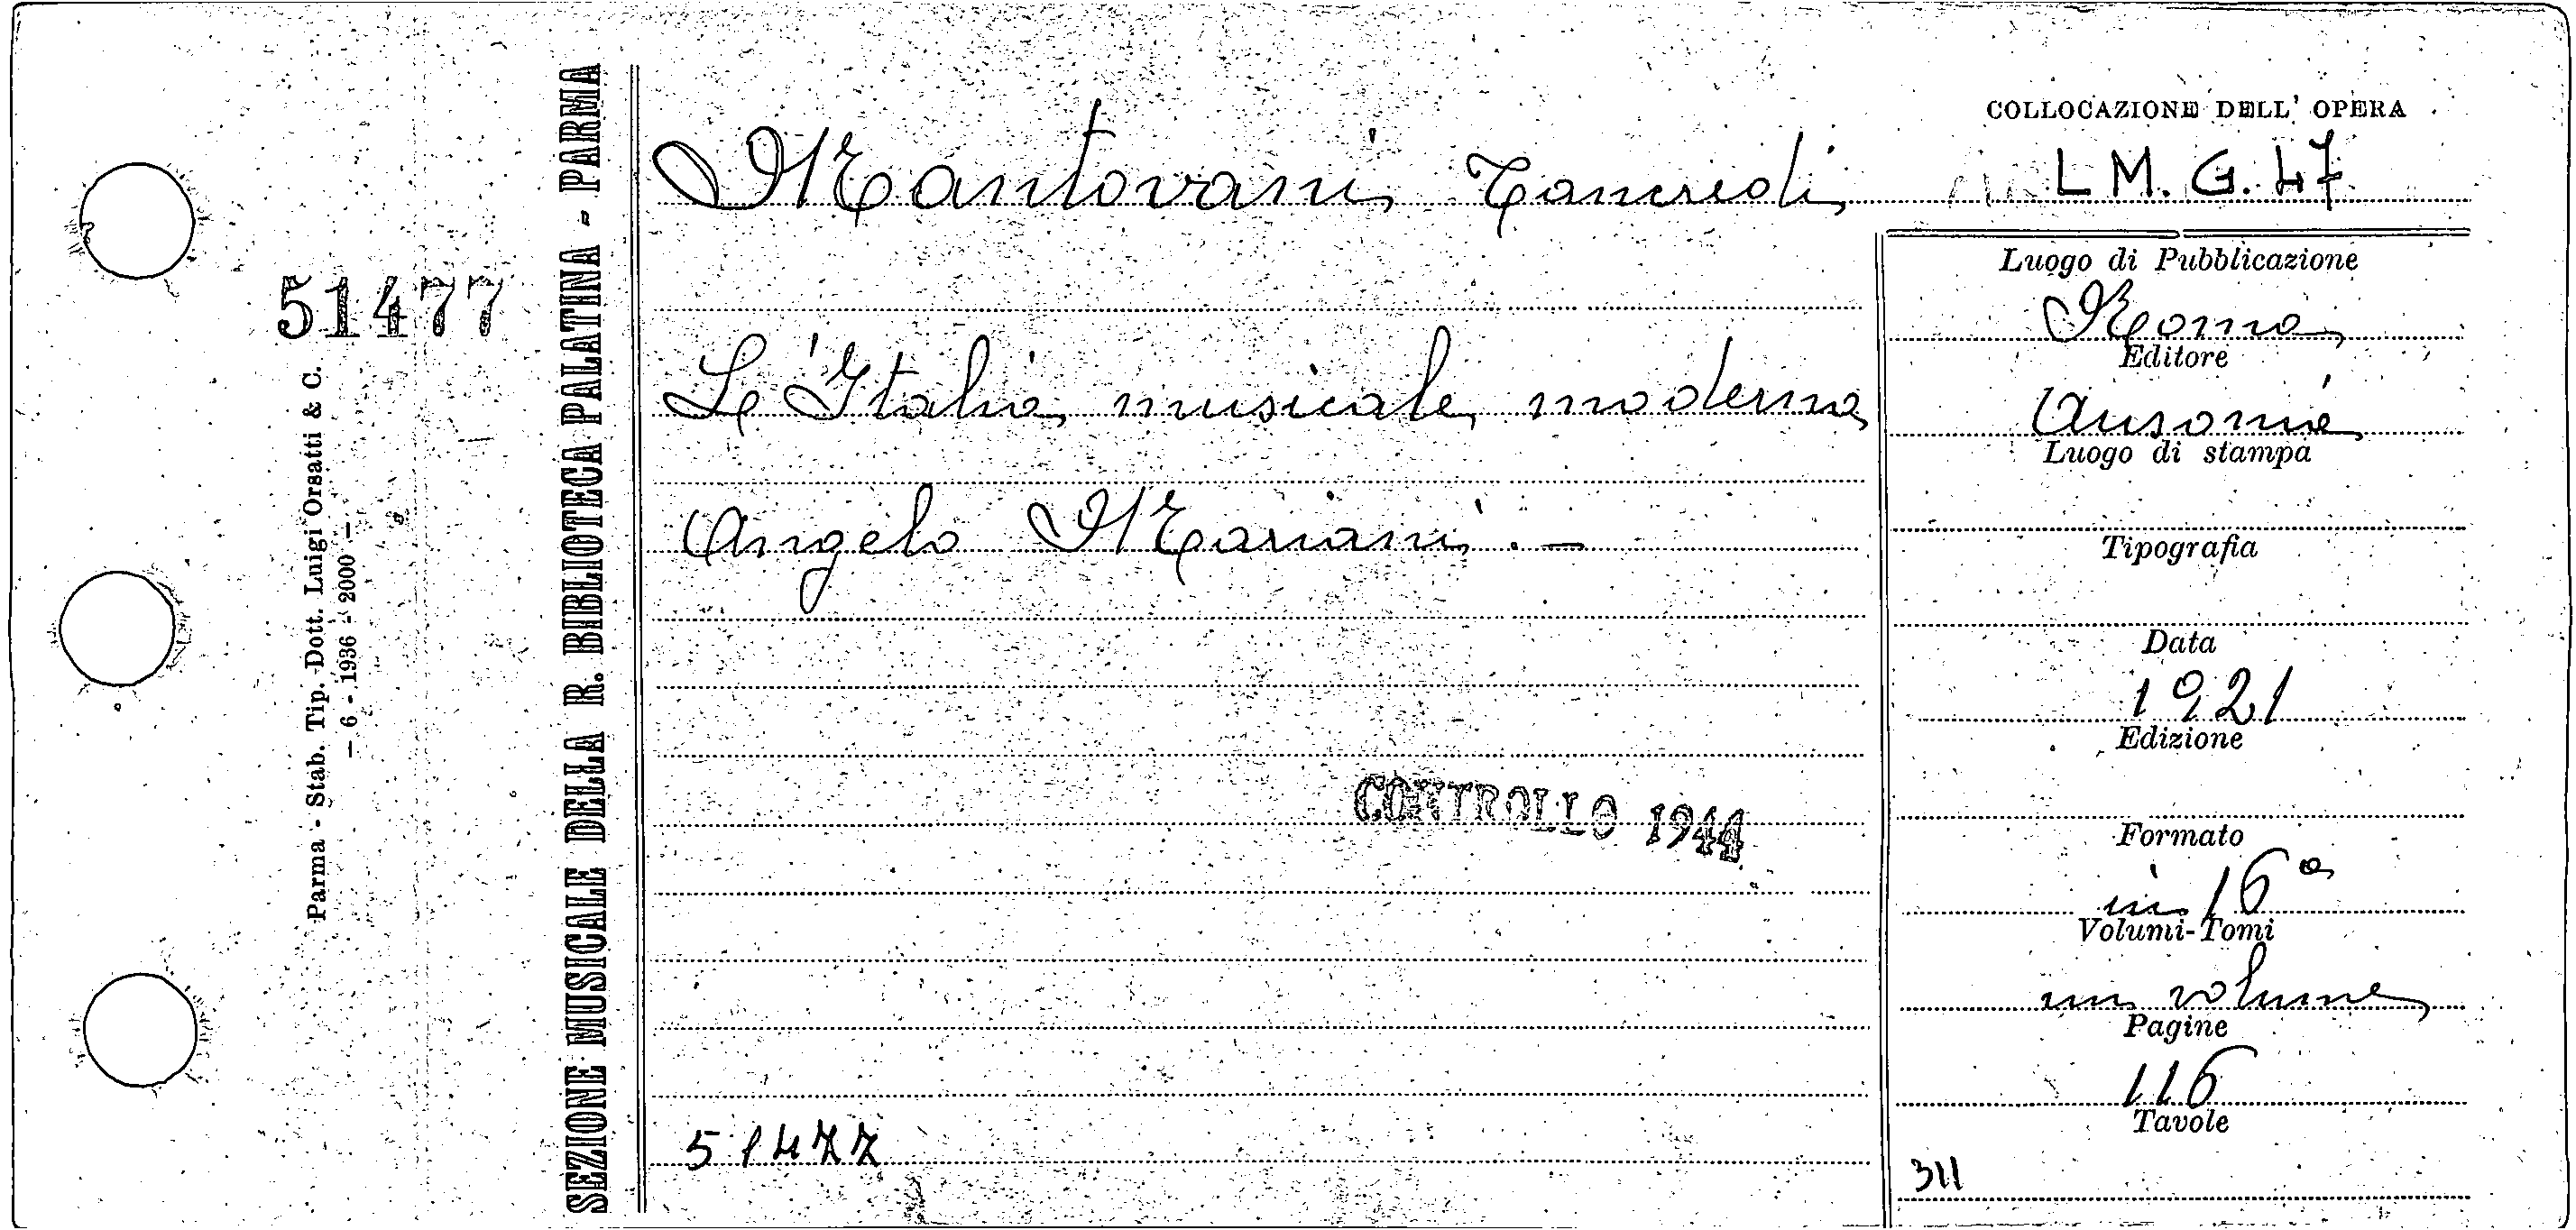 51477
Parma - Stab. Tip. Dott. Luigi Orsatti & C.
— 6 - 1936 - 2000 —
SEZIONE MUSICALE DELLA R. BIBLIOTECA PALATINA - PARMA
Mantovani Tancredi
L'Italia musicale moderna
Angelo Mariani. —
CONTROLLO 1944
51477
COLLOCAZIONE DELL' OPERA
L M. G. 47
Luogo di Pubblicazione
Roma
Editore
Ausonia
Luogo di stampa
Tipografia
Data
1921
Edizione
Formato
in 16º
Volumi-Tomi
un volume
Pagine
116
Tavole
311